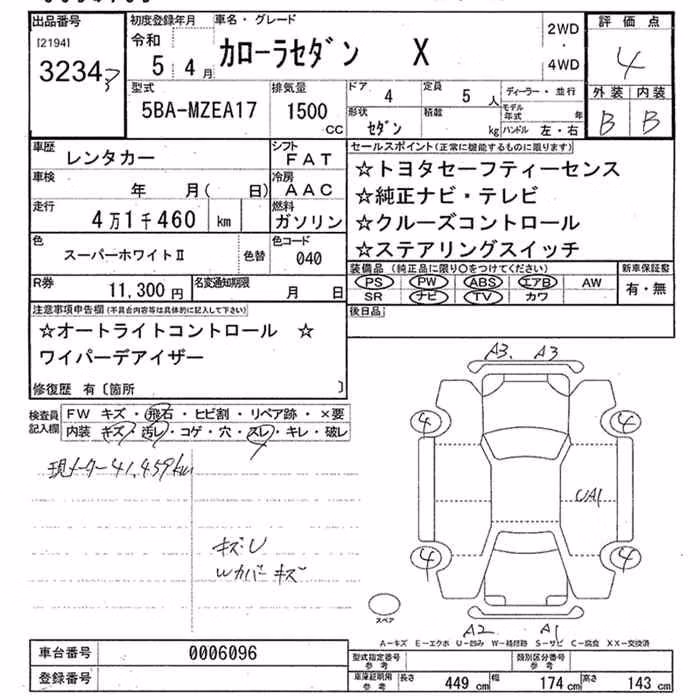 出品番号 初度登録年月 車名・グレード 2WD・4WD 評価点
[2194] 令和 カローラセダン X 4
3234 5 4月
型式 排気量 ドア 4 定員 5人 ディーラー・並行 外装 内装
5BA-MZEA17 1500 CC 形状 セダン 積載 kg モデル年式 年 B B
ハンドル 左・右
車歴 レンタカー シフト FAT セールスポイント(正常に機能するものに限ります)
車検 年 月( 日) 冷房 AAC ☆トヨタセーフティーセンス
走行 4万1千460 km 燃料 ガソリン ☆純正ナビ・テレビ
☆クルーズコントロール
色 スーパーホワイトⅡ 色替 色コード 040 ☆ステアリングスイッチ
R券 11,300円 名変通知期限 月 日 装備品(純正品に限り〇をつけてください) 新車保証書
PS PW ABS エアB AW 有・無
SR ナビ TV カワ
注意事項申告欄(不具合内容等は具体的に記入して下さい) 後日品
☆オートライトコントロール ☆
ワイパーデアイザー
修復歴 有〔箇所 〕
検査員記入欄 FW キズ・飛石・ヒビ割・リペア跡・×要
内装 キズ・汚レ・コゲ・穴・スレ・キレ・破レ
現メーター41,459km
キズU
Wカバーキズ
A3. A3
4 4
UA1
4 4
スペア
A2 A1
A-キズ E-エクボ U-凹み W-補修跡 S-サビ C-腐食 XX-交換済
車台番号 0006096 型式指定番号 参考 類別区分番号 参考
登録番号 車庫証明用 参考 長さ 449 cm 幅 174 cm 高さ 143 cm